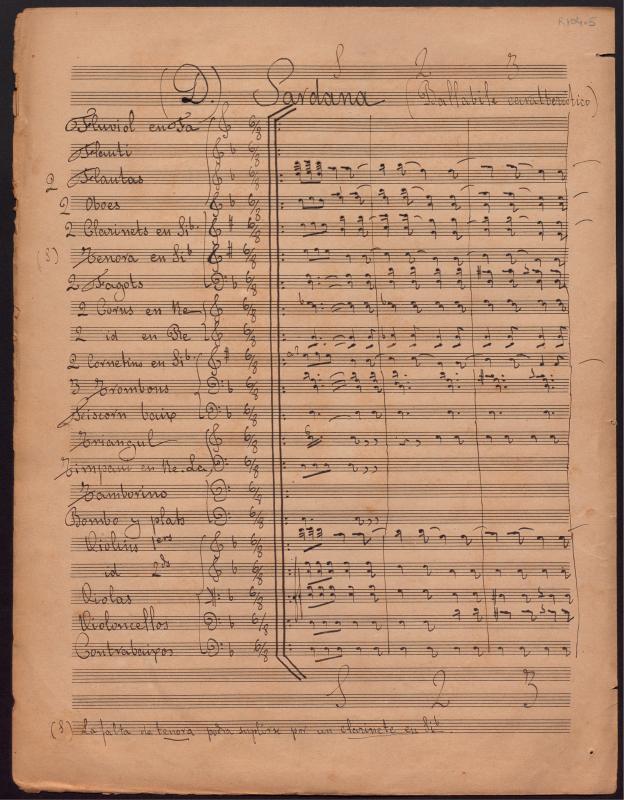 R.104-5
1 2 3
(D.) Sardana (Ballabile caratteristico)
Fluviol en Fa
Flauti
2 Flautas
2 Oboes
2 Clarinets en Sib.
(1) Tenora en Sib
2 Fagots
2 Corns en Re
2 id en Re
2 Cornetins en Sib.
3 Trombons
Triangul
Timpani en Re. La
Tamborino
Bombo y plats
Violins 1ers
id 2ds
Violas
Violoncellos
Contrabaixos
1 2 3
(1) La falta de tenora podra suplirse por un clarinete en Sib.